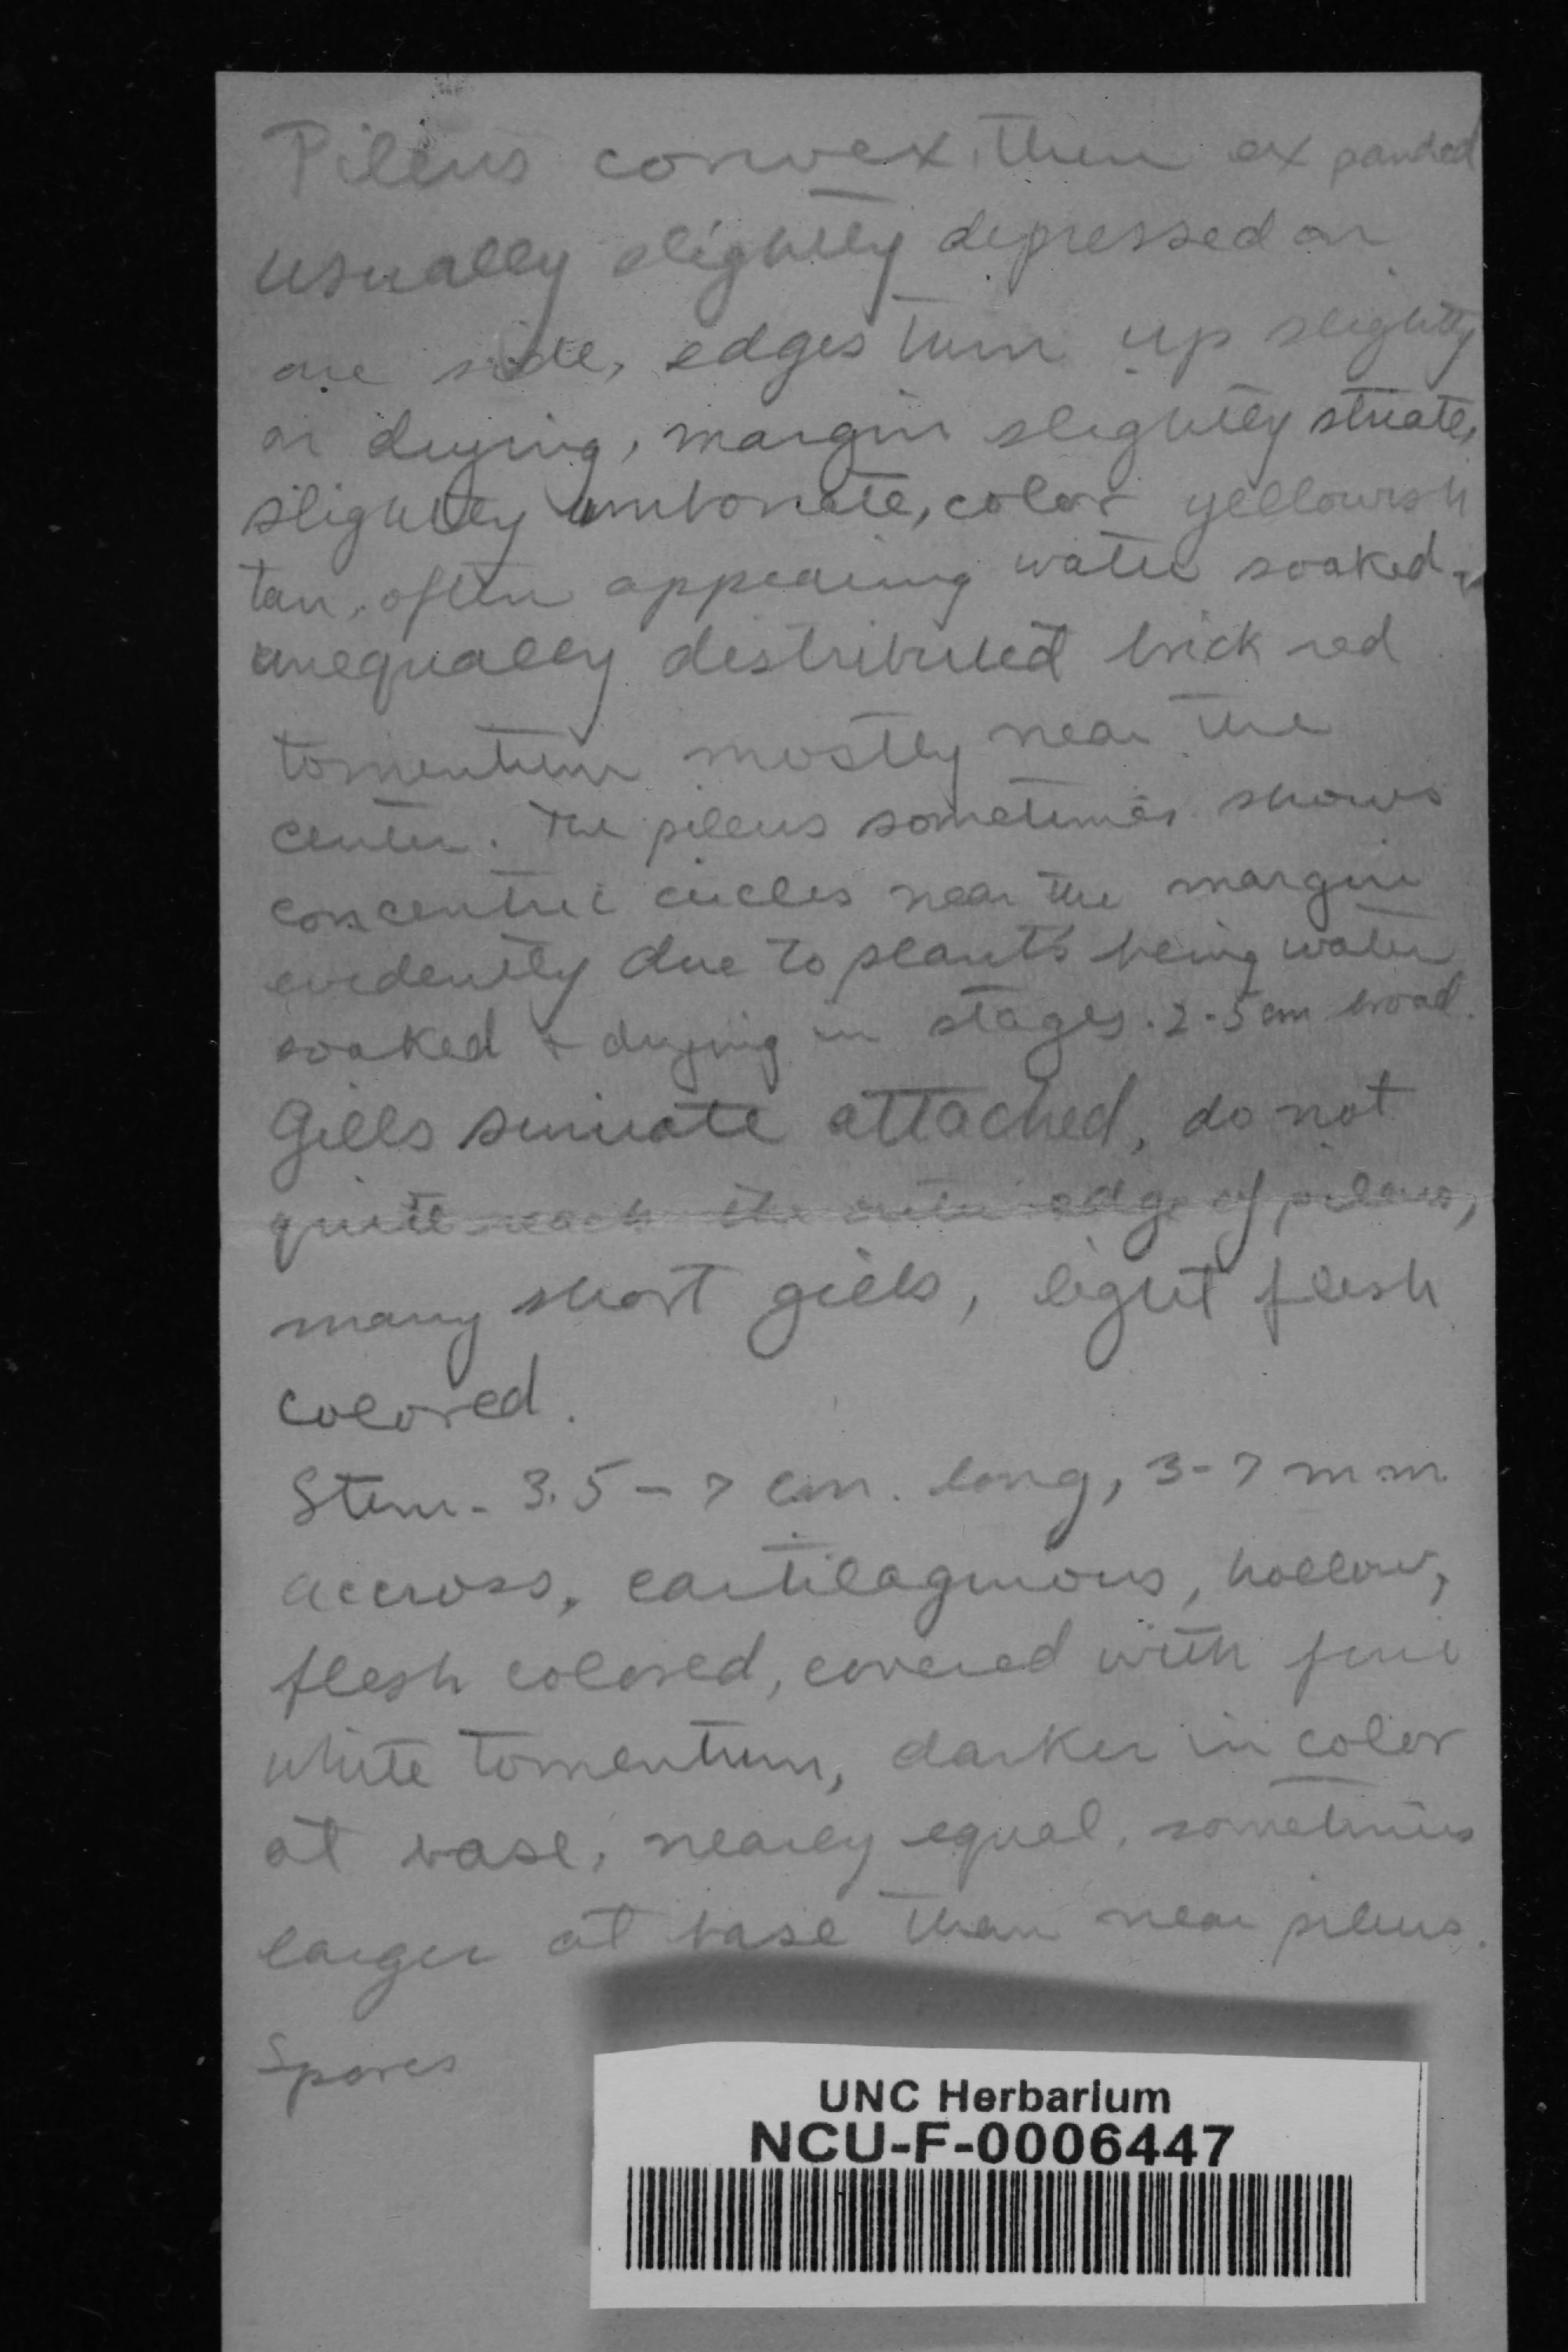 Pileus convex, then expanded
usually slightly depressed on
one side, edges turn up slightly
on drying, margin slightly striate,
slightly umbonate, color yellowish
tan, often appearing water soaked,
unequally distributed brick red
tomentum mostly near the
center. The pileus sometimes shows
concentric circles near the margin
evidently due to plants being water
soaked & drying in stages. 2-5 cm broad.
Gills sinuate attached, do not
quite reach the outer edge of pileus,
many short gills, light flesh
colored.
Stem - 3.5 - 7 cm. long, 3-7 mm
accross, cartilaginous, hollow,
flesh colored, covered with fine
white tomentum, darker in color
at base, nearly equal, sometimes
larger at base than near pileus.
Spores
UNC Herbarium
NCU-F-0006447